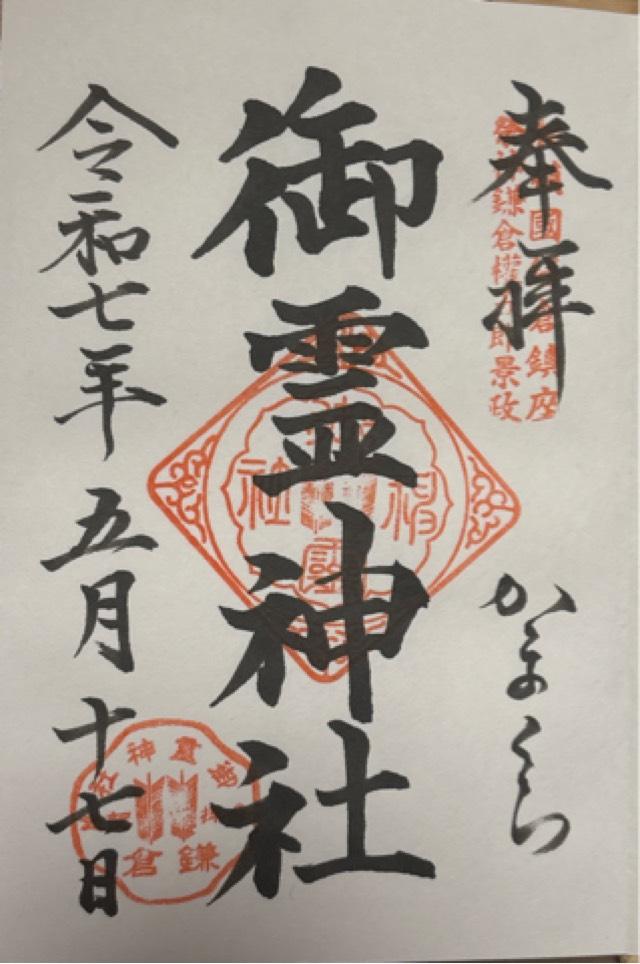 奉拝
國倉鎮座
鎌倉權郎景政
かまくら
御霊神社
神社
鎌倉
令和七年五月十七日